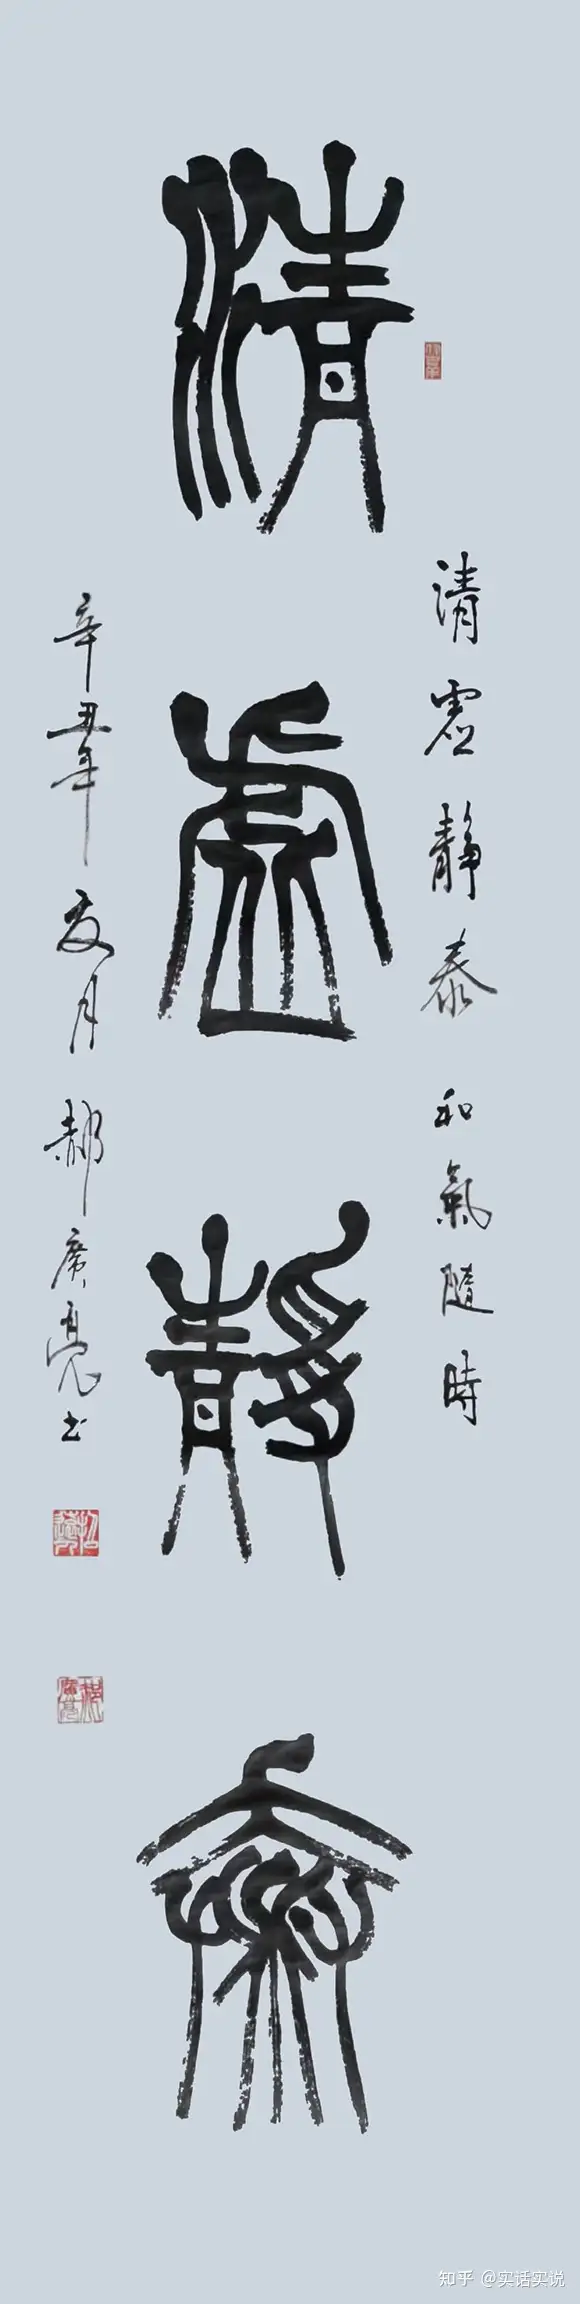 清虛靜泰
清虚静泰 和氣隨時
辛丑年夏月 郝廣亮书
知乎 @实话实说